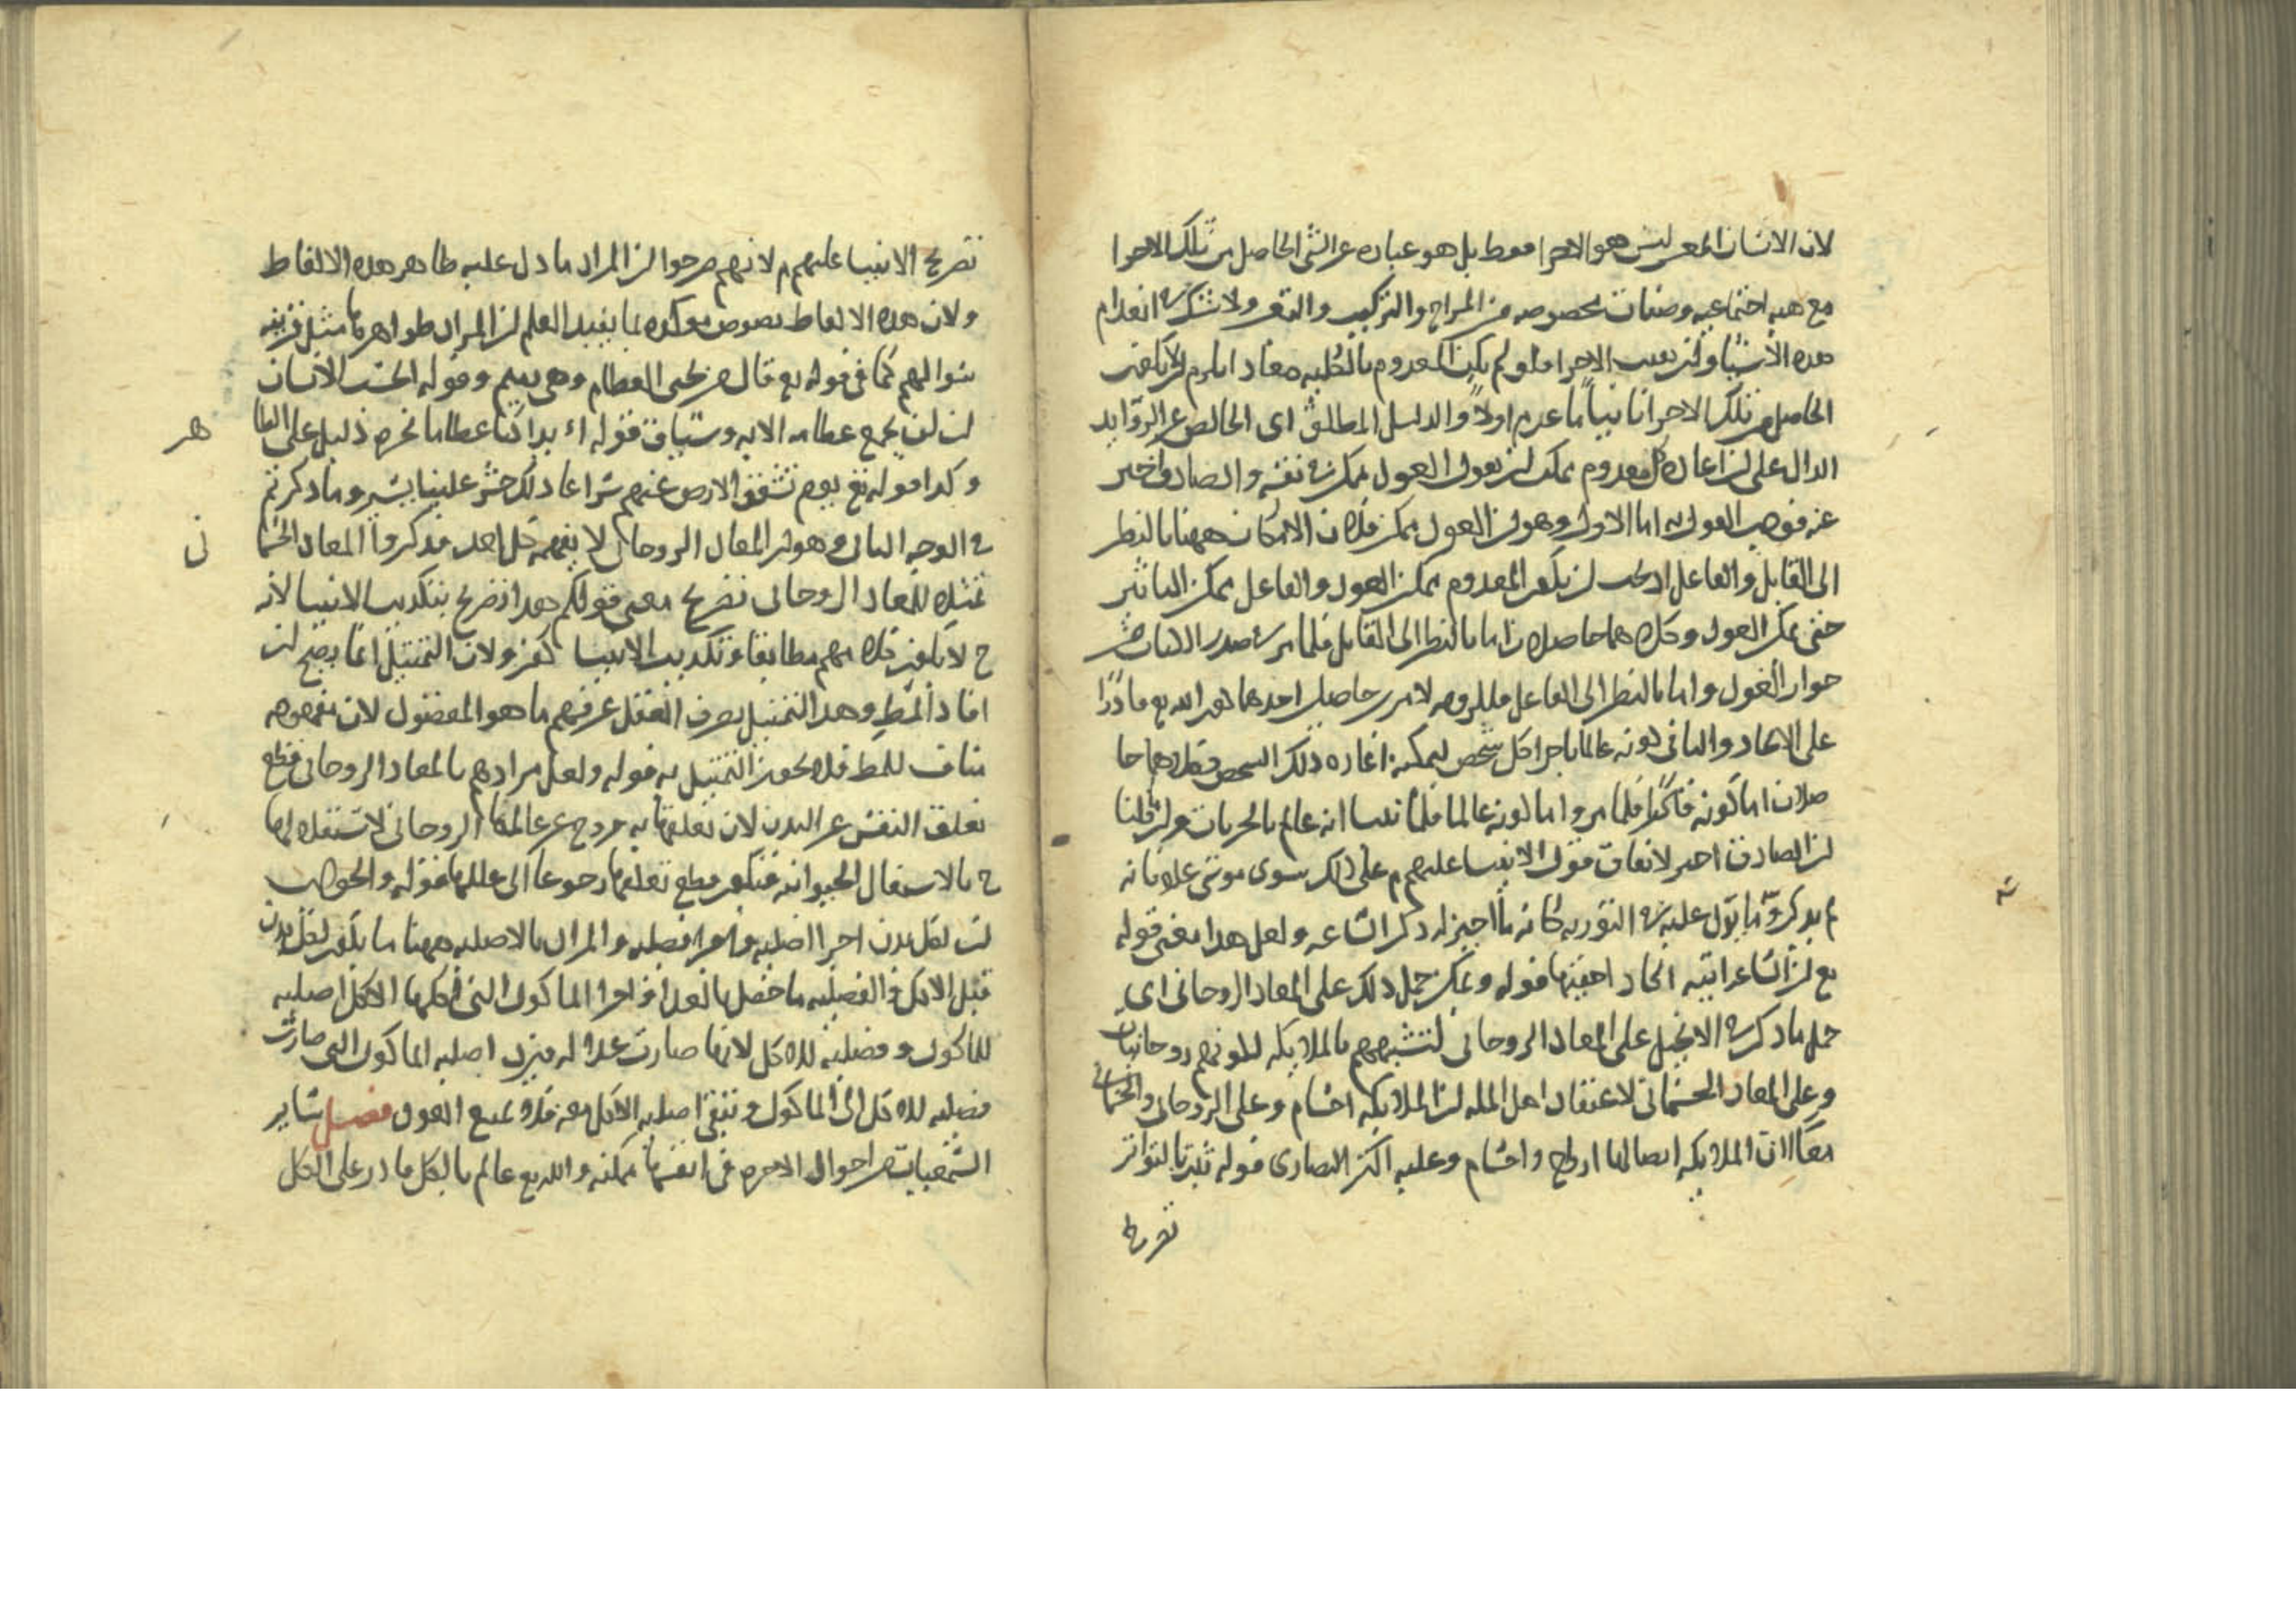 لان الانسان المعين ليس هو الاجزا فقط بل هو عباره عن الشي الحاصل من تلك الاجزا
مع هيه اجتماعيه وصفات مخصوصه من المزاج والتركيب ولا شك في انعدام
هذه الاشيا وان بقيت الاجزا فلو لم يكن المعدوم بالكليه معادا
الحاصل من تلك الاجزا ثانيا اولا والدليل المطابق اى الخالص عن الزوايد
الدال على ان اعاده كل معدوم ممكن ان العود ممكن فى نفسه والصادق اخبر
عنه فوجب القول به اما الاول وهو ان العود ممكن فلان الامكان ههنا بالنظر
الى القابل والفاعل اذ يجب ان يكون المعدوم ممكن العود والفاعل ممكن التاثير
حتى يمكن العود وكلاهما حاصلان اما بالنظر الى القابل فلما مر فى صدر الكتاب من
جواز العود واما بالنظر الى الفاعل لامرين حاصل احدهما كون الله تع قادرا
على الايجاد والثانى كونه عالما باجزا كل شخص ليمكنه اعاده ذلك الشخص وكلاهما حا
صلان اما كونه قادرا فلما مر واما كونه عالما فلما بينا انه عالم بالجزيات
ان الصادق اخبر لاتفاق الانبيا عليهم م على ذلك سوى موسى علم فانه
لم يذكره ما نزل عليه فى التوريه كانه ما اجيز له ذكر الساعه ولعل هذا معنى قوله
تع ان الساعه اتيه اكاد اخفيها قوله ويمكن حمل ذلك على المعاد الروحانى اى
حمل ما ذكر فى الانجيل على المعاد الروحانى لتشبيههم بالملايكه لكونهم روحانيات
وعلى المعاد الجسمانى لاعتقاد اهل المله ان الملايكه اجسام وعلى الروحانى والجسمانى
معا لان الملايكه ايضا لها ارواح واجسام وعليه اكثر النصارى قوله ثبت بالتواتر
تصريح
تصريح الانبيا عليهم م لانهم صرحوا ان المراد ما دل عليه ظاهر هذه الالفاظ
ولان هذه الالفاظ نصوص موكده بما يفيد العلم ان المراد ظواهرها مثل قرينه
سوالهم كما فى قوله تع قال من يحيى العظام وهى رميم وقوله ايحسب الانسان
ان لن نجمع عظامه الايه وسياق قوله اءذا كنا عظاما نخره دليل على الظا
هر
وكذا قوله تع يوم تشقق الارض عنهم سراعا ذلك حشر علينا يسير وما ذكرتم
فى الوجه الثانى وهو ان المعاد الروحانى لا يفهمه كل احد فذكروا المعاد الجسما
نى
تمثيلا للمعاد الروحانى تصريح معنى قولكم هذا تصريح بتكذيب الانبيا لانه
ح لا يكون كلامهم مطابقا وتكذيب الانبيا كفر ولان التمثيل انما يصح ان
افاد المط وهذا التمثيل يصرف العقل عن فهم ما هو المقصود لان مفهومه
مناف للمط فلا يجوز التمثيل به قوله ولعل مرادهم بالمعاد الروحانى قطع
تعلق النفس عن البدن لان تعلقها به خروج عن عالمها الروحانى لاشتغالها
ح بالاشغال الحيوانيه فيكون قطع تعلقها رجوعا الى عالمها قوله والجواب
ان لكل بدن اجزا اصليه واجزا فضليه والمراد بالاصليه ههنا ما يكون لكل بدن
قبل الاكل والفضليه ما حصل بالغذا فاجزا الماكول التى اكلها الاكل اصليه
للماكول وفضليه للاكل لانها صارت غذا له فيرد اصليه الماكول التى صارت
فضليه للاكل الى الماكول وتبقى اصليه الاكل معه فلا يمتنع العود فصل ساير
السمعيات من احوال الاخره فى انفسها ممكنه والله تع عالم بالكل قادر على الكل